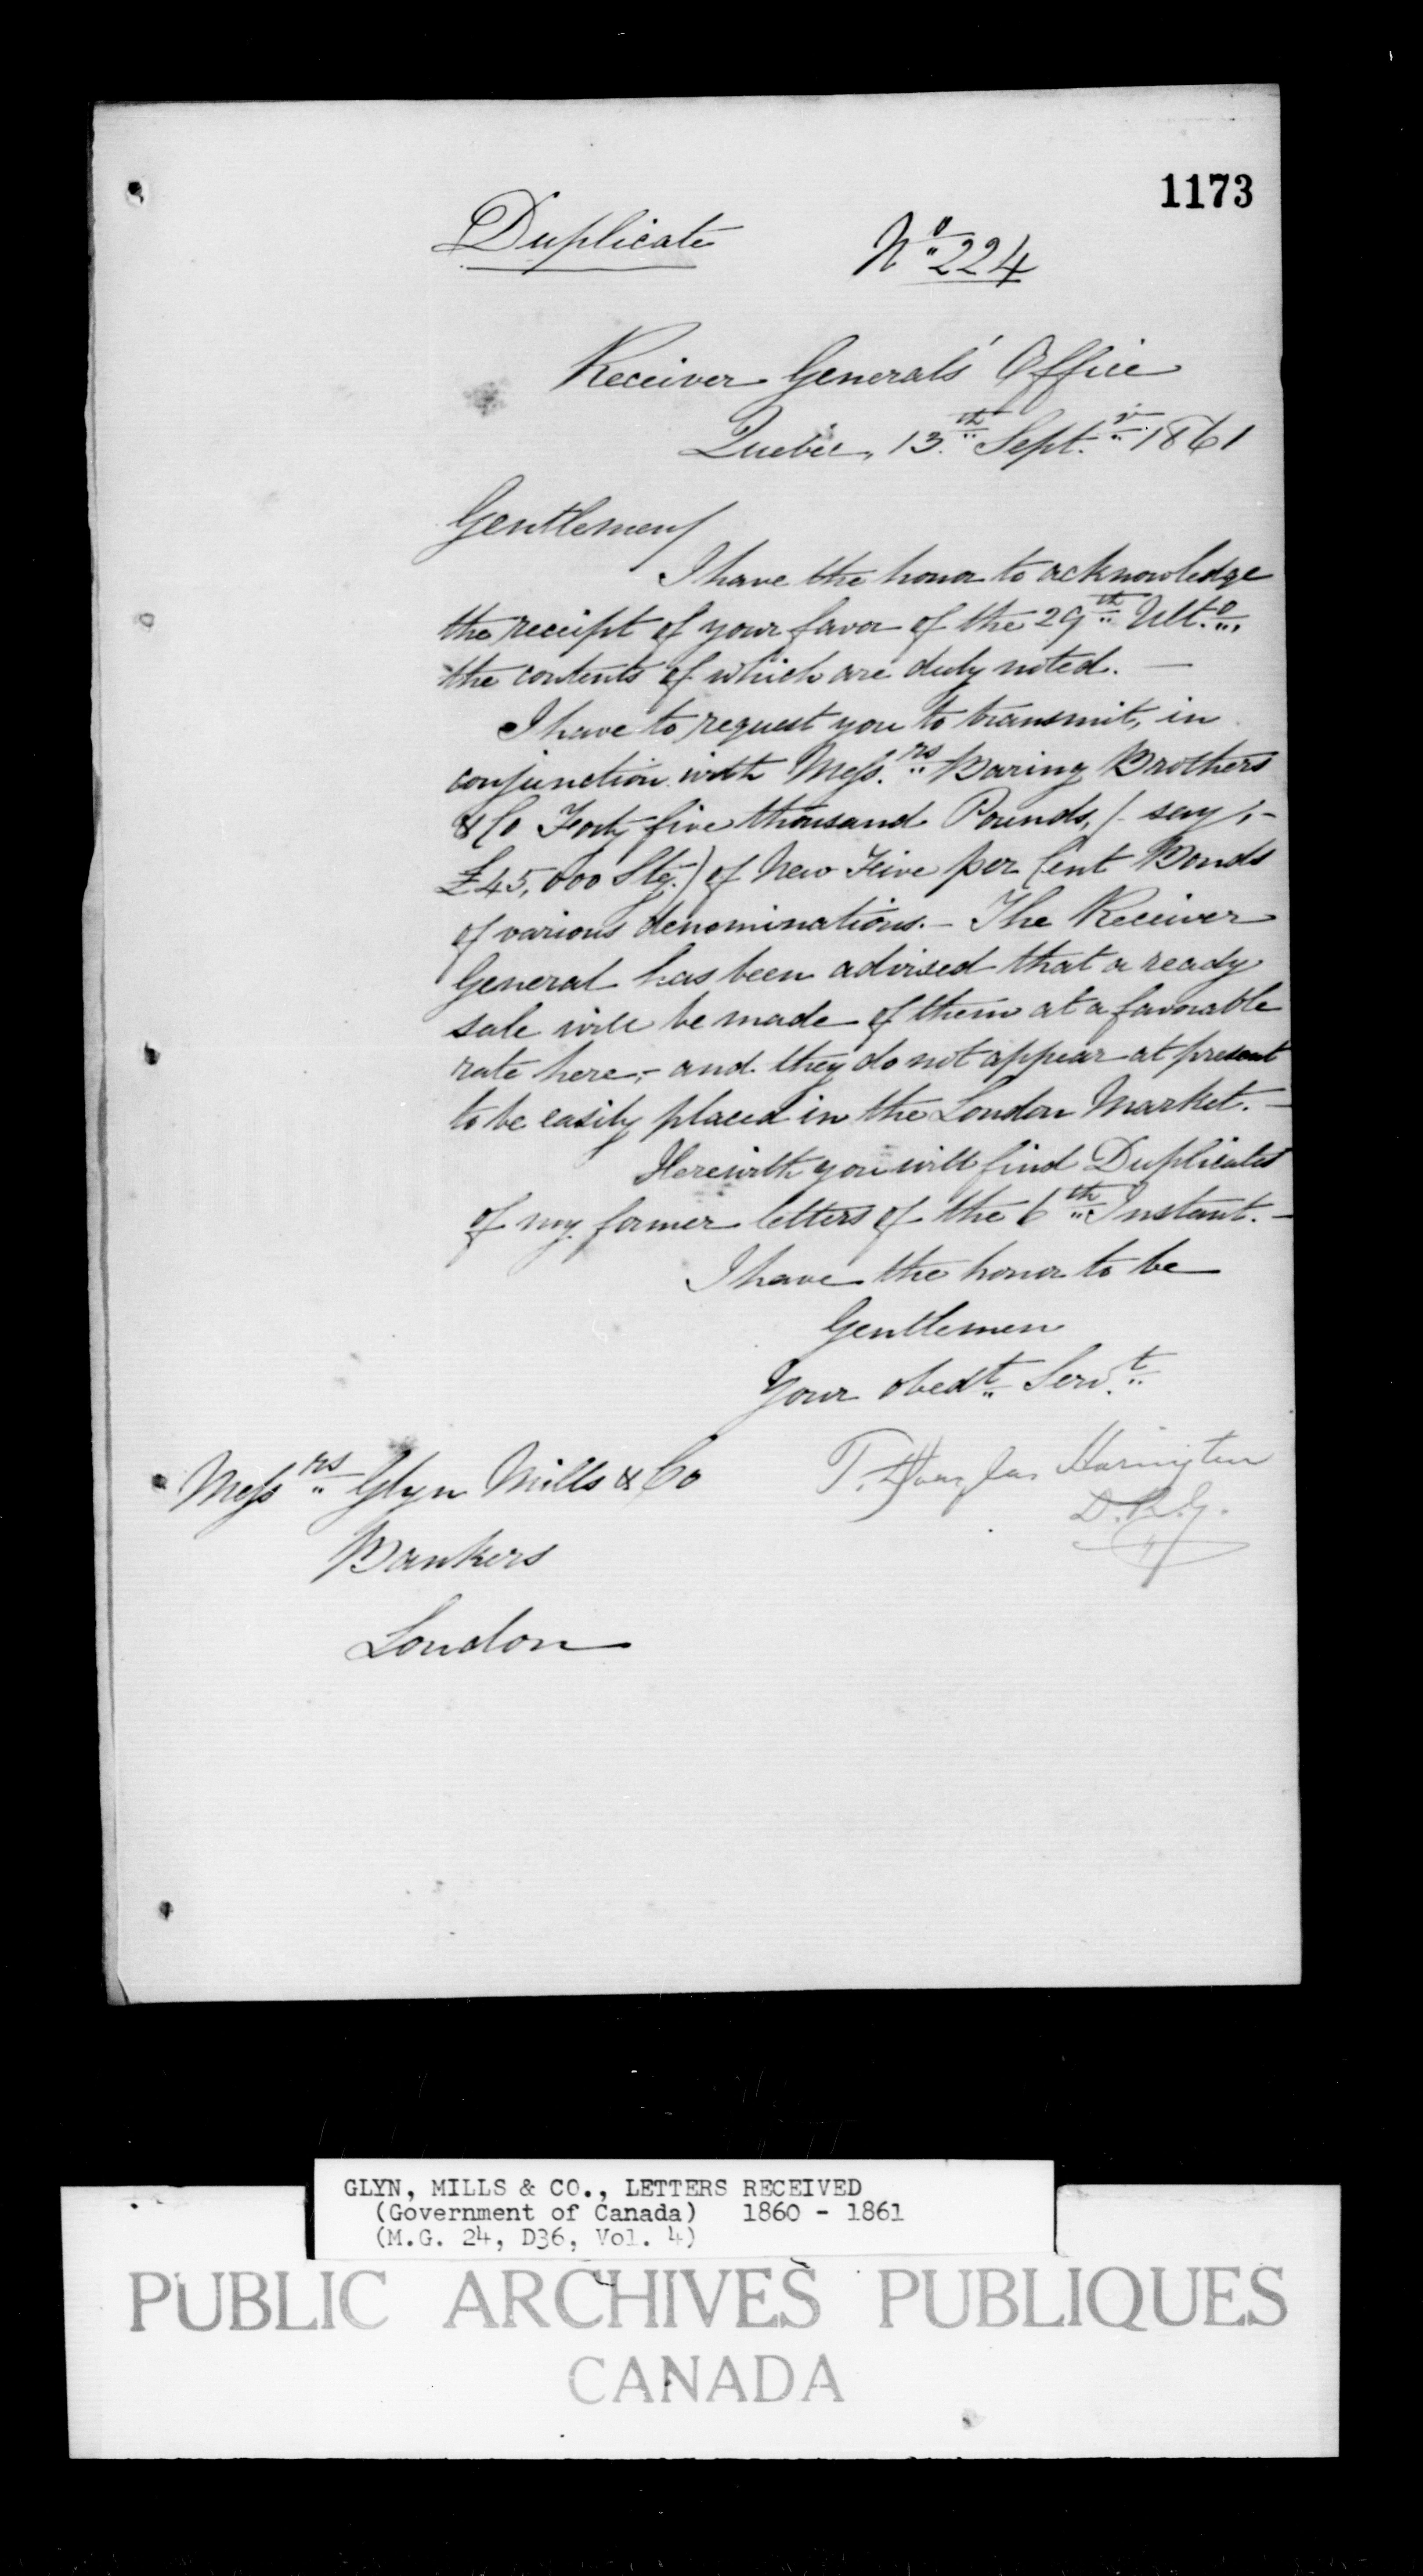 1173
Duplicate
No 224
Receiver Generals' Office
Quebec, 13th Septr 1861
Gentlemen/
I have the honor to acknowledge
the receipt of your favor of the 29th Ulto,
the contents of which are duly noted. —
I have to request you to transmit, in
conjunction with Messrs Baring Brothers
& Co Forty five thousand Pounds, (say,-
£45,000 Stg.) of New Five per Cent Bonds
of various denominations. – The Receiver
General has been advised that a ready
sale will be made of them at a favorable
rate here, – and they do not appear at present
to be easily placed in the London Market. –
Herewith you will find Duplicates
of my former letters of the 6th Instant. –
I have the honor to be
Gentlemen
Your obedt Servt
T. Douglas Harington
D.R.G.
Messrs Glyn Mills & Co
Bankers
London
GLYN, MILLS & CO., LETTERS RECEIVED
(Government of Canada) 1860 - 1861
(M.G. 24, D36, Vol. 4)
PUBLIC ARCHIVES PUBLIQUES
CANADA